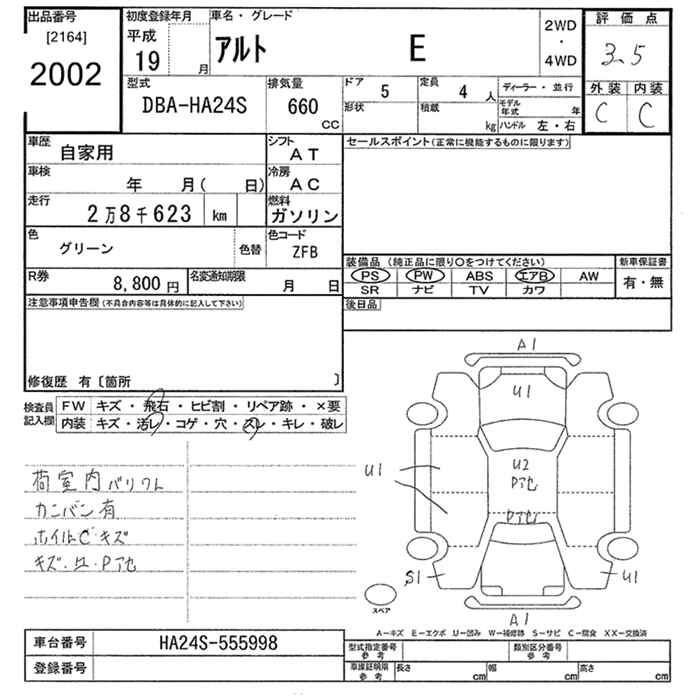 出品番号
[2164]
2002
初度登録年月
平成
19 月
車名・グレード
アルト E
2WD
・
4WD
評価点
3.5
外装 内装
C C
型式
DBA-HA24S
排気量
660
CC
ドア 5
形状
定員 4 人
積載 kg
ディーラー・並行
モデル年式 年
ハンドル 左・右
車歴
自家用
シフト
AT
車検
年 月( 日)
冷房
AC
走行
2万8千623 km
燃料
ガソリン
色
グリーン
色替
色コード
ZFB
R券
8,800 円
名変通知期限
月 日
セールスポイント(正常に機能するものに限ります)
装備品(純正品に限り○をつけてください)
PS PW ABS エアB AW
SR ナビ TV カワ
新車保証書
有・無
後日品
注意事項申告欄(不具合内容等は具体的に記入して下さい)
修復歴 有〔箇所 〕
検査員
記入欄
FW キズ・飛石・ヒビ割・リペア跡・×要
内装 キズ・汚レ・コゲ・穴・スレ・キレ・破レ
荷室内バリワレ
カンバン有
ホイルC キズ
キズ・凹・Pアセ
A1
U1
U2
Pアセ
Pアセ
U1
S1
U1
A1
スペア
A-キズ E-エクボ U-凹み W-補修跡 S-サビ C-腐食 XX-交換済
車台番号 HA24S-555998
登録番号
型式指定番号
参考
類別区分番号
参考
車庫証明用
参考
長さ cm 幅 cm 高さ cm